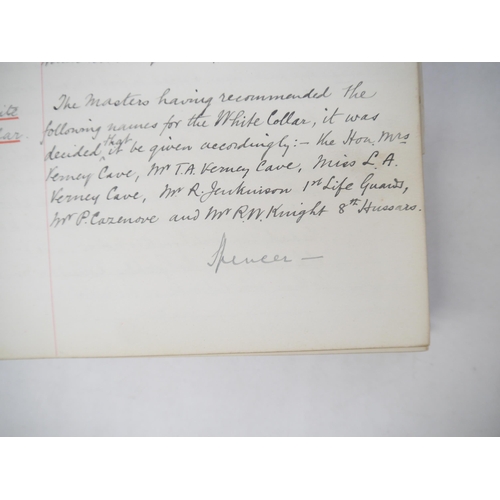 The Masters having recommended the
following names for the White Collar, it was
decided that it be given accordingly:- the Hon. Mrs
Verney Cave, Mr T.A. Verney Cave, Miss L. A.
Verney Cave, Mr R. Jenkinson 1st Life Guards,
Mr P. Cazenove and Mr R.W. Knight 8th Hussars.
Spencer —